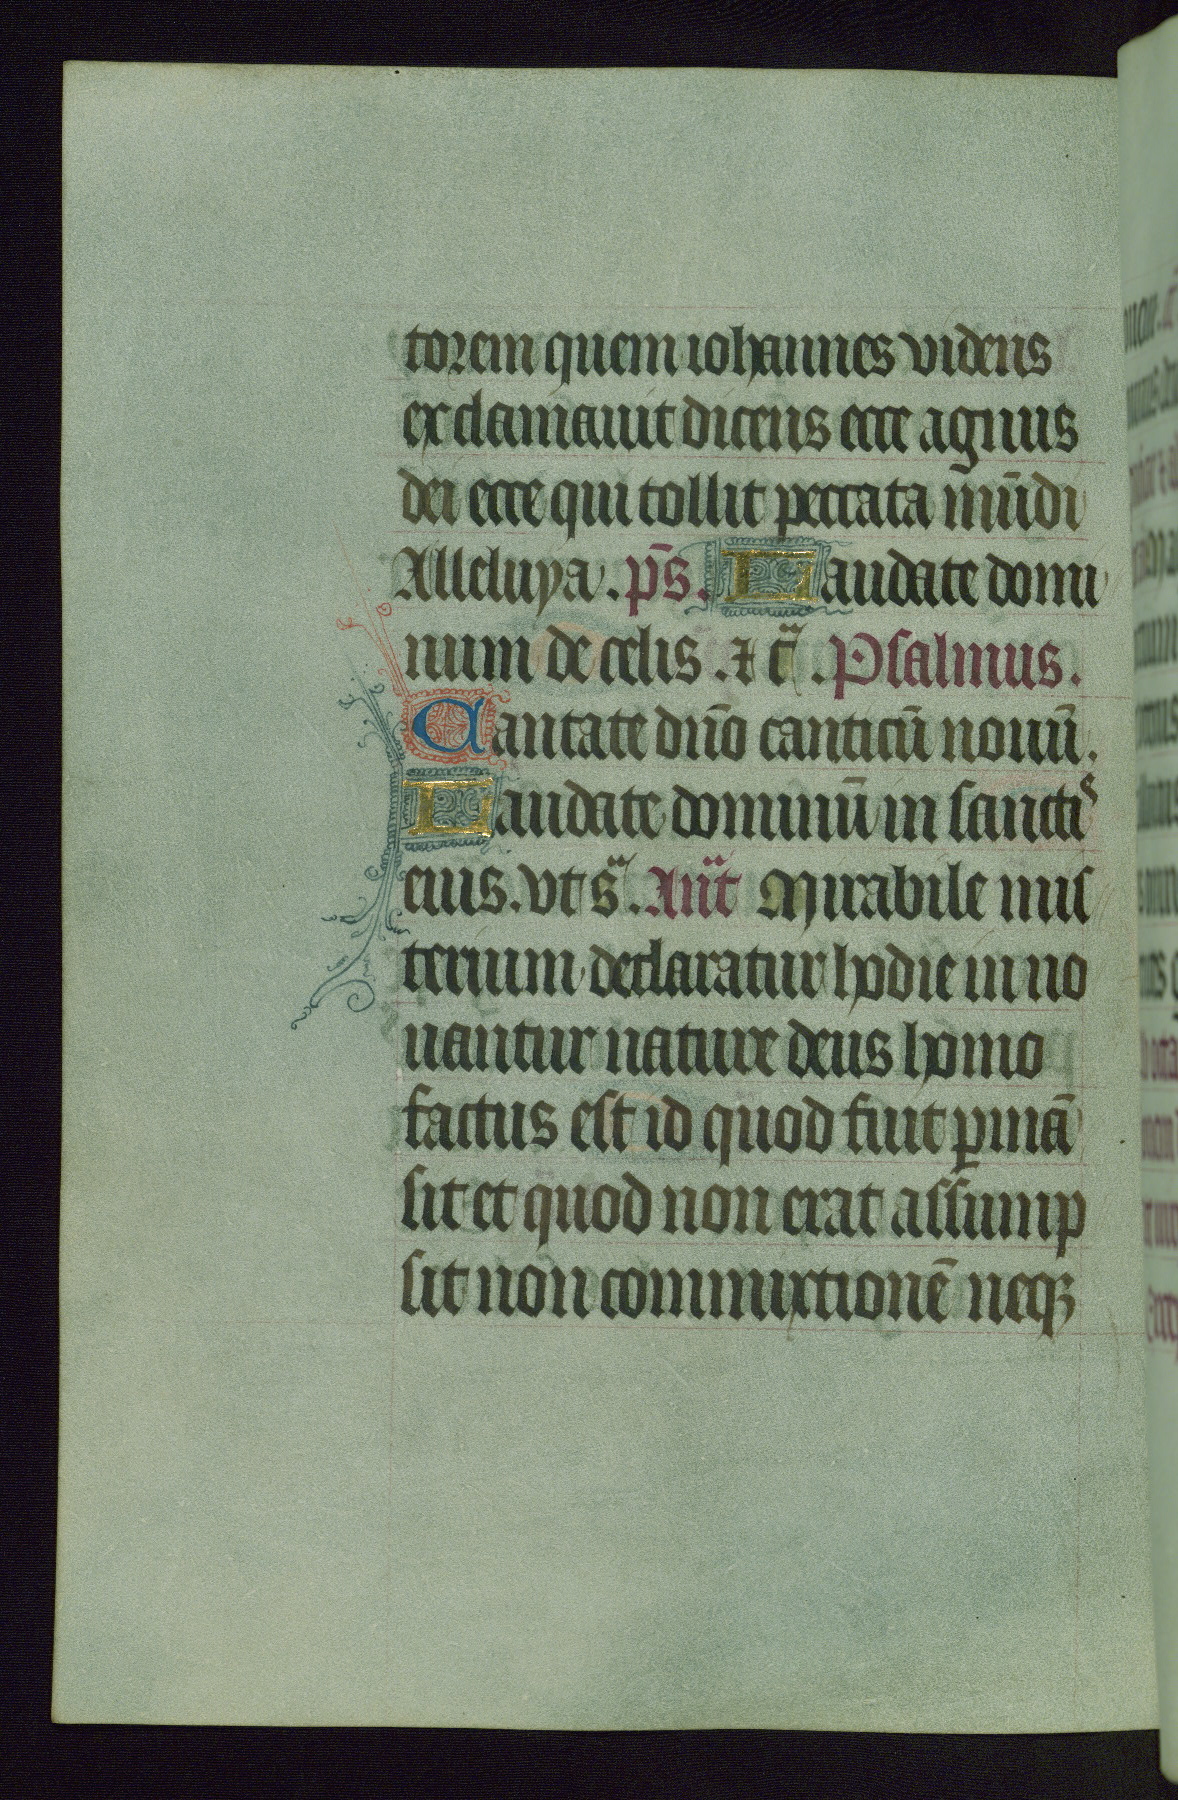 torem quem iohannes videns
exclamauit dicens ecce agnus
dei ecce qui tollit peccata mūdi
Alleluya. ps̄. Laudate domi
num de celis. ⁊ cᷓ. Psalmus.
Cantate dn̄o canticū nouū.
Laudate dominū in sanctis
eius. vt sᷓ. Anᷓt Mirabile mis
terium declaratur hodie in no
uantur nature deus homo
factus est id quod fuit ꝑmā
sit et quod non erat assump
sit non commixtionē neqꝫ